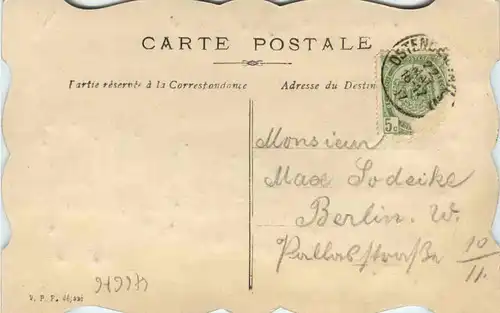 CARTE POSTALE
Partie réservée à la Correspondance
Adresse du Destin
OSTENDE
5c
Monsieur
Max Lodeike
Berlin. W.
Pallasstraße 10/11.